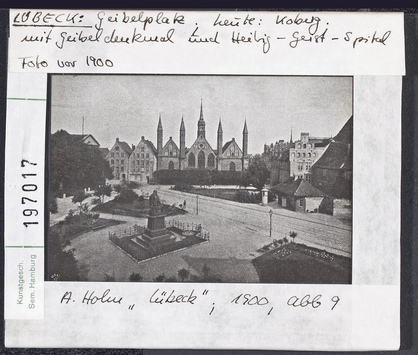 LÜBECK: Geibelplatz. heute: Koberg.
mit Geibeldenkmal und Heilig-Geist-Spital
Foto vor 1900
197017
Kunstgesch.
Sem. Hamburg
A. Holm „Lübeck"; 1900, Abb 9